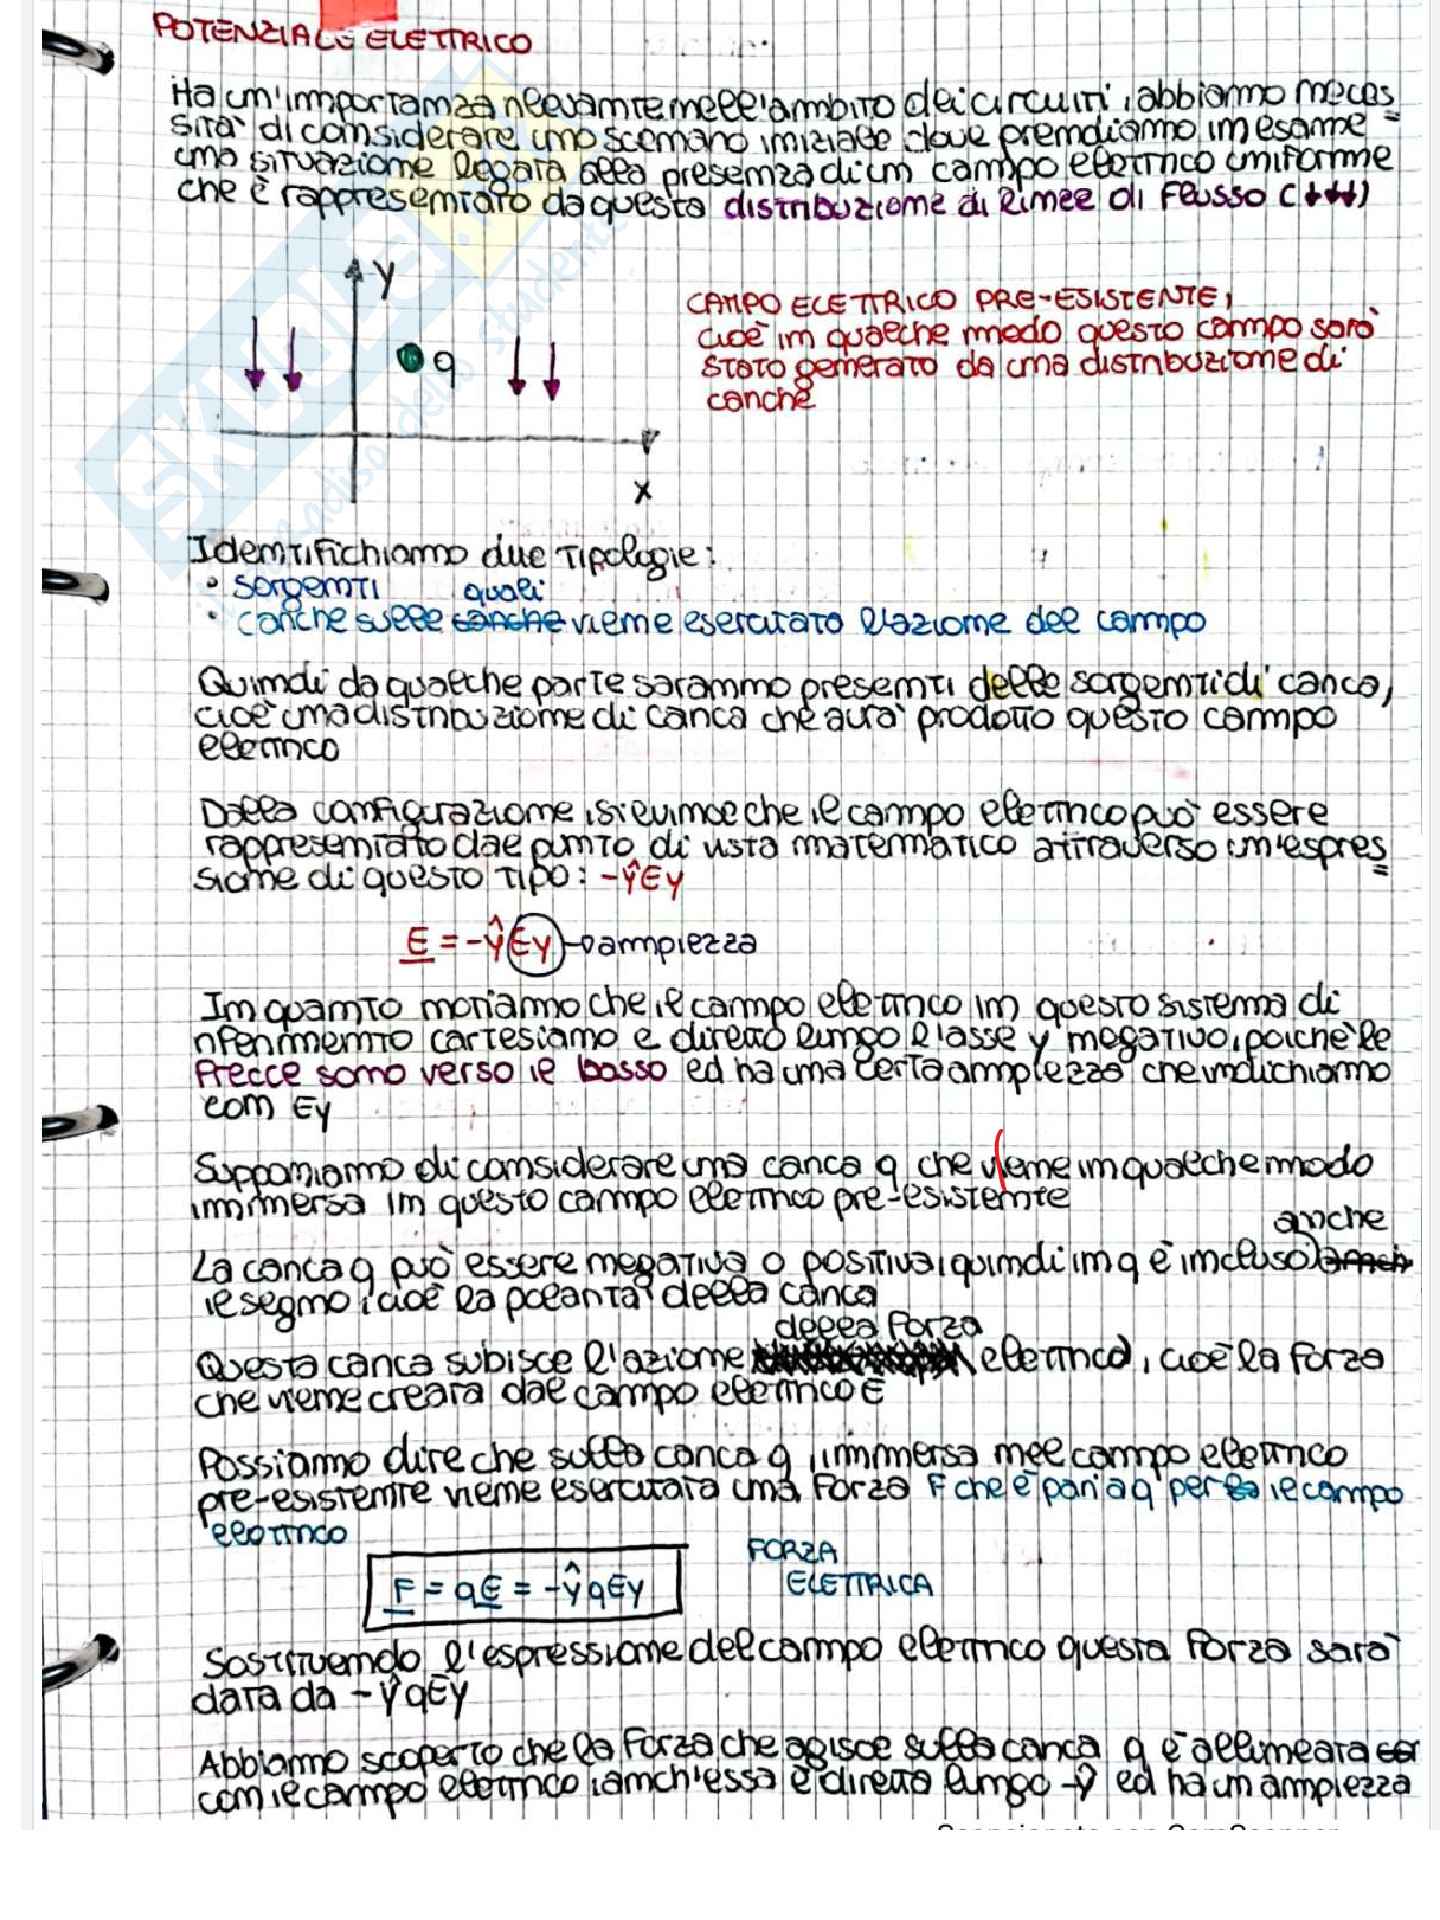 POTENZIALE ELETTRICO
Ha un'importanza rilevante nell'ambito dei circuiti, abbiamo neces
sità di considerare uno scenario iniziale dove prendiamo in esame
una situazione legata alla presenza di un campo elettrico uniforme
che è rappresentato da questa distribuzione di linee di flusso (↓↓↓)
y
q
x
CAMPO ELETTRICO PRE-ESISTENTE,
cioè in qualche modo questo campo sarà
stato generato da una distribuzione di
cariche
Identifichiamo due tipologie:
• sorgenti
quali
• cariche sulle cariche viene esercitato l'azione del campo
Quindi da qualche parte saranno presenti delle sorgenti di carica,
cioè una distribuzione di carica che avrà prodotto questo campo
elettrico
Dalla configurazione, si evince che il campo elettrico può essere
rappresentato dal punto di vista matematico attraverso un'espres
sione di questo tipo: -ŷEy
E = -ŷEy → ampiezza
In quanto notiamo che il campo elettrico in questo sistema di
riferimento cartesiano e diretto lungo l'asse y negativo, poichè le
frecce sono verso il basso ed ha una certa ampiezza che indichiamo
con Ey
Supponiamo di considerare una carica q che viene in qualche modo
immersa in questo campo elettrico pre-esistente
anche
La carica q può essere negativa o positiva, quindi in q è incluso
il segno, cioè la polarità della carica
della forza
Questa carica subisce l'azione elettrica, cioè la forza
che viene creata dal campo elettrico E
Possiamo dire che sulla carica q, immersa nel campo elettrico
pre-esistente viene esercitata una forza F che è pari a q per il campo
elettrico
F = qE = -ŷqEy
FORZA
ELETTRICA
Sostituendo l'espressione del campo elettrico questa forza sarà
data da -ŷqEy
Abbiamo scoperto che la forza che agisce sulla carica q è allineata
con il campo elettrico, anch'essa è diretta lungo -ŷ ed ha un ampiezza